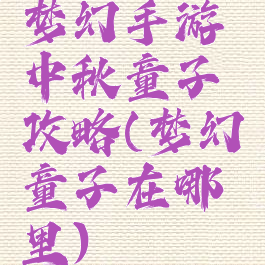 梦幻手游
中秋童子
攻略(梦幻
童子在哪
里)